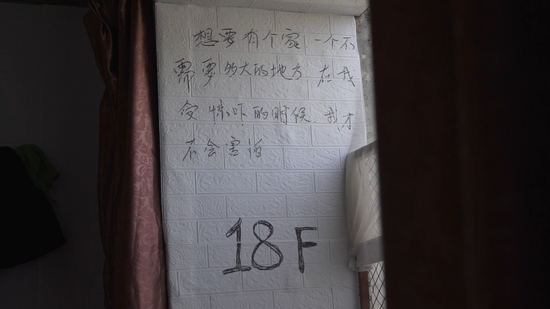 想要有个家 一个不
需要多大的地方 在我
受惊吓的时候 我才
不会害怕
18F